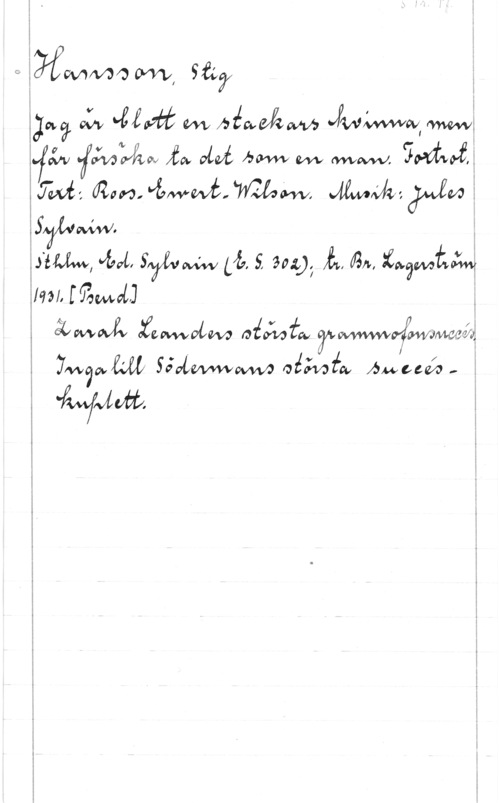 Hansson, Stig
Jag är blott en stackars kvinna, men
får försöka ta det som en man. Foxtrot.
Text: Roos-Ewert-Wilson. Musik: Jules
Sylvain.
Sthlm, Ed. Sylvain (E. S. 302); tr. Br. Lagerström
1931. [Pseud.]
Zarah Leanders största grammofonsuccés.
Ingalill Södermans största succés-
kuplett.